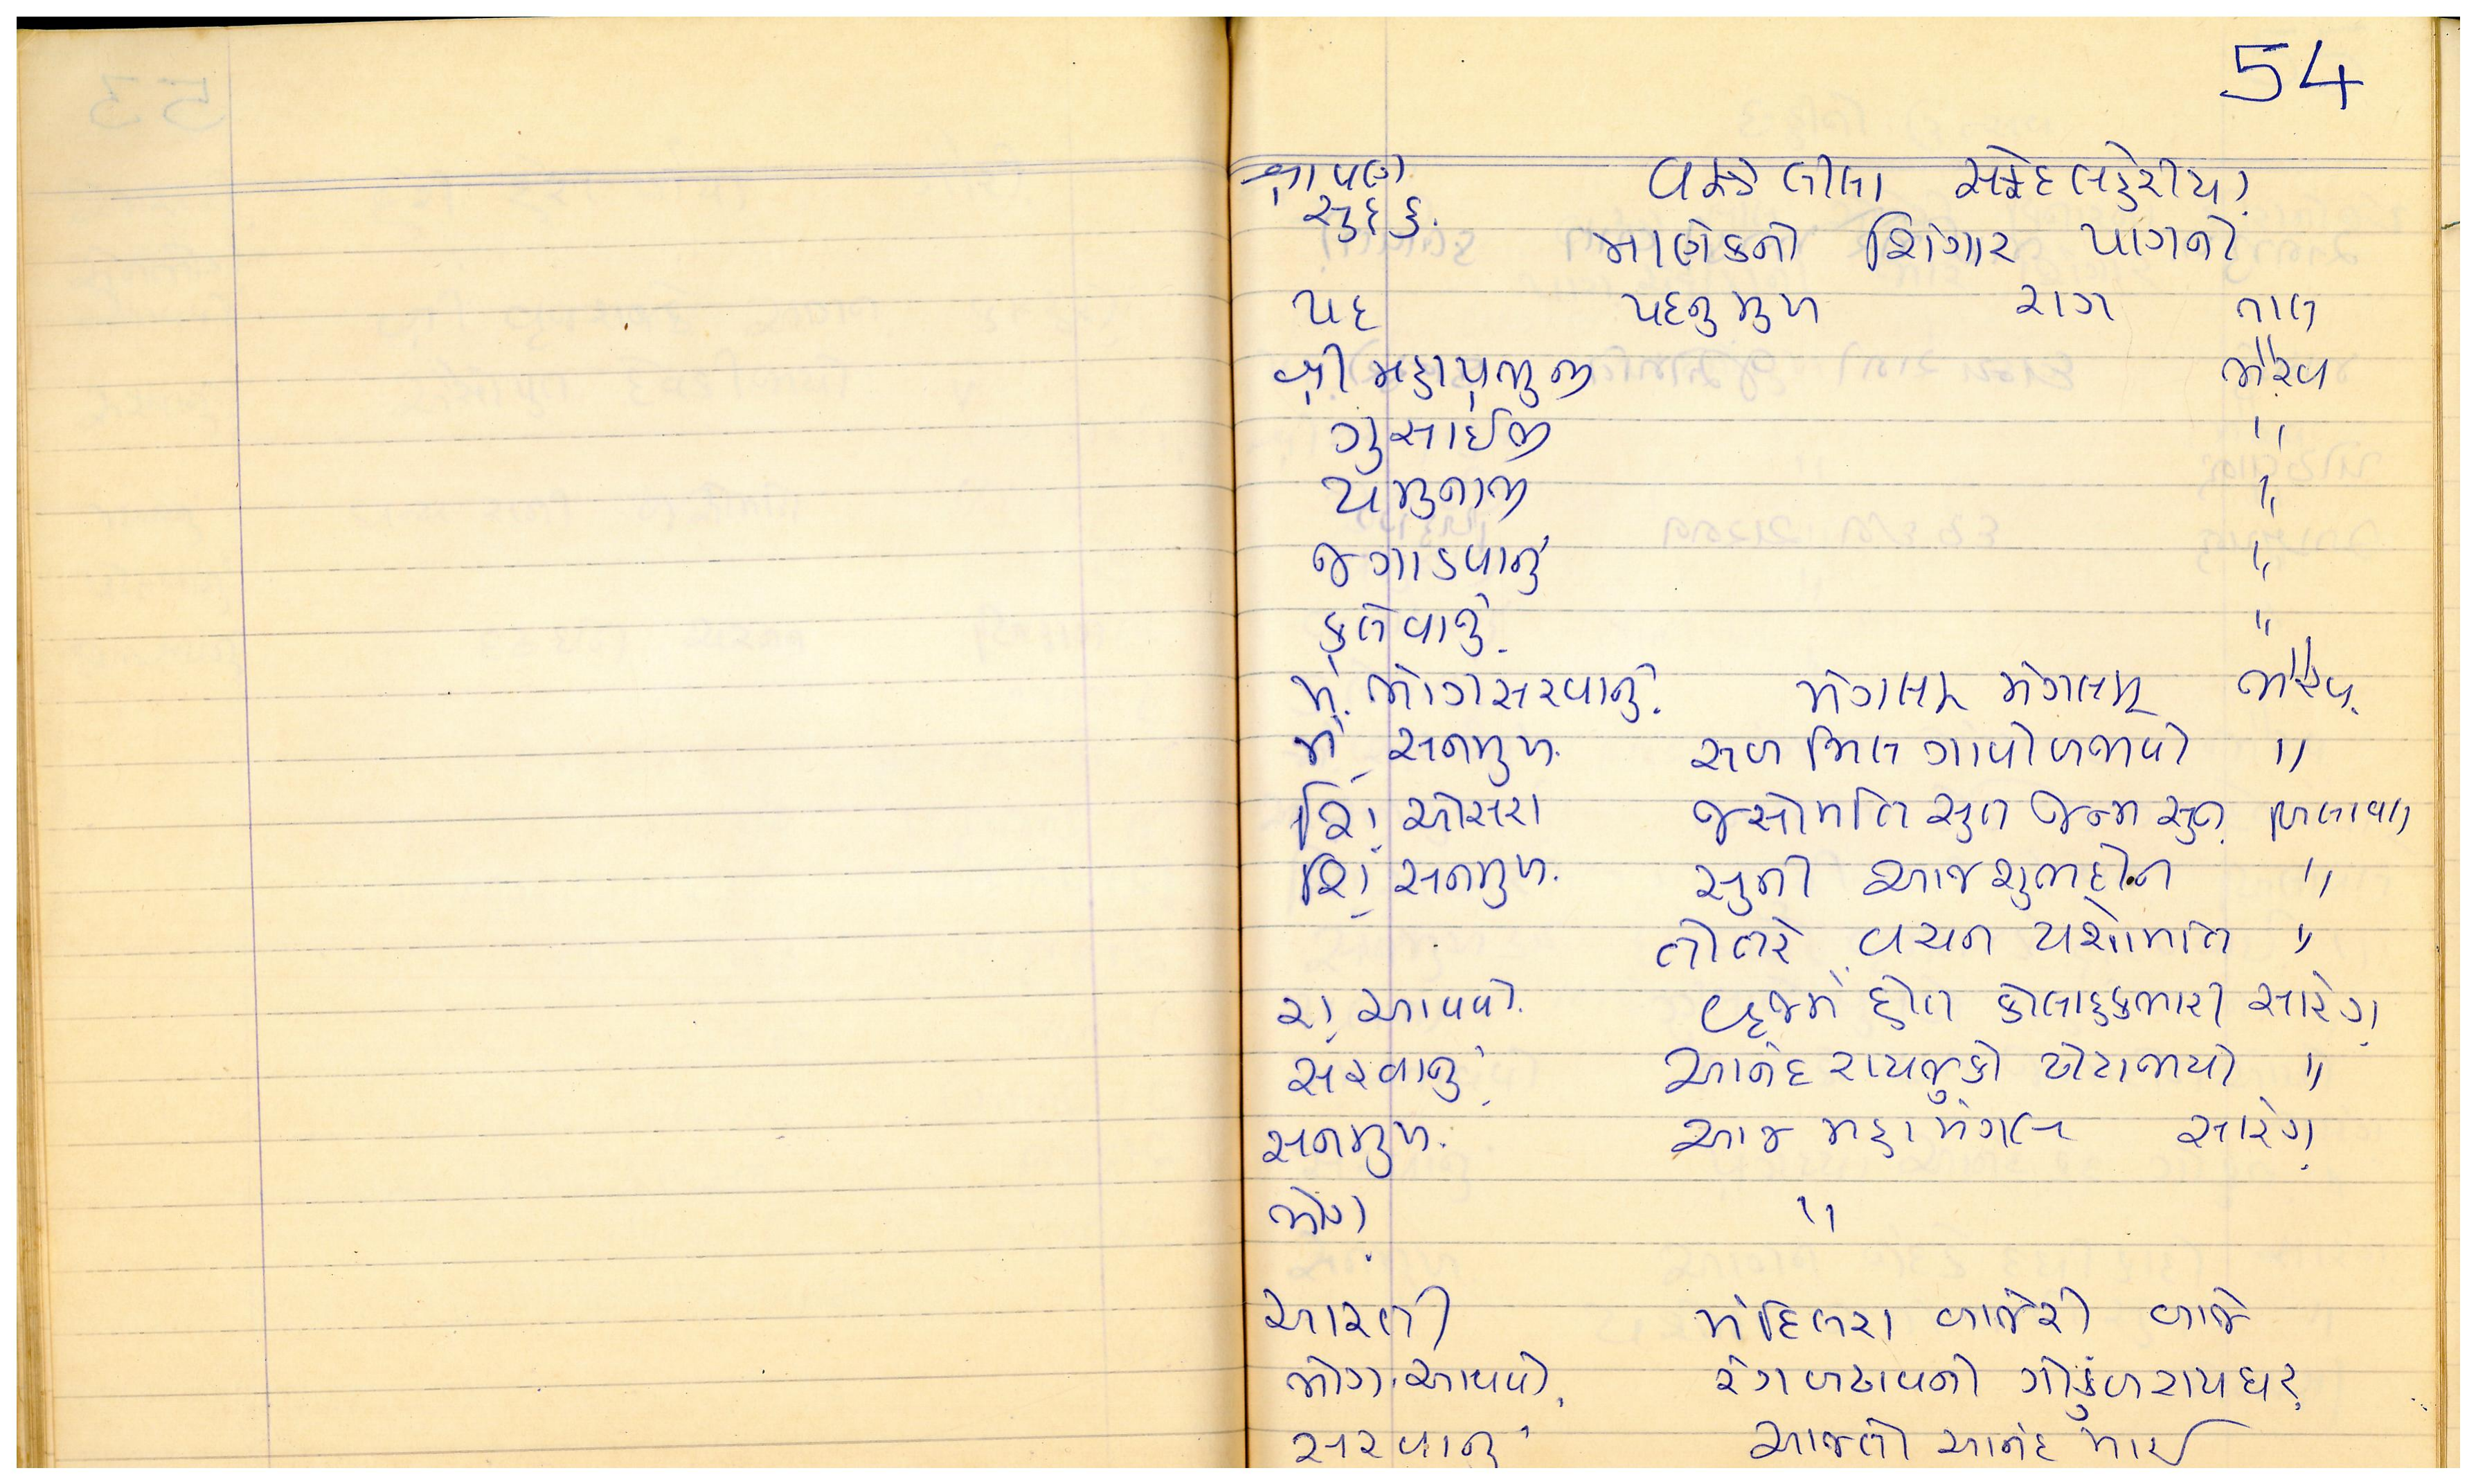 54
શ્રાવણ વસ્ત્રો લીલા સફેદ લહેરીયા
સુદ ૬. માણેકનો શિંગાર પાગનો
પદ પદનુ મુખ રાગ તાલ
શ્રી મહાપ્રભુજી ભૈરવ
ગુસાંઈજી "
યમુનાજી "
જગાડવાનું "
કલેવાનું. "
મં. ભોગસરવાનું. મંગલમ્ મંગલમ્ ભૈરવ.
મં. સનમુખ. સબ મિલ ગાવો બજાવો "
શિં. ઓસરા જસોમતિ સુત જન્મ સુન બિલાવલ
શિં. સનમુખ. સુની આજ સુભદીન "
વચન યશોમતિ "
રા. આવવો. વ્રજમેં હોત કોલાહલભારી સારંગ
સરવાનું આનંદ રાયજુકો ઢોટાજાયો "
સનમુખ. આજ મહા મંગલ સારંગ
ભોગ "
આરતી મંદિલરા બાજેરી બાજે
ભોગ આવવો રંગ બઢાવનો ગોકુળરાય ઘર
સરવાનું આજતો આનંદ માઈ